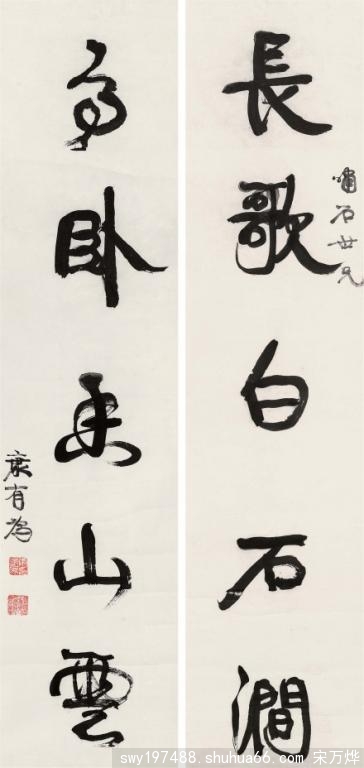 長歌白石澗
嘯石世兄
高卧香山雲
康有為
swy197488.shuhua66.com 宋万烨